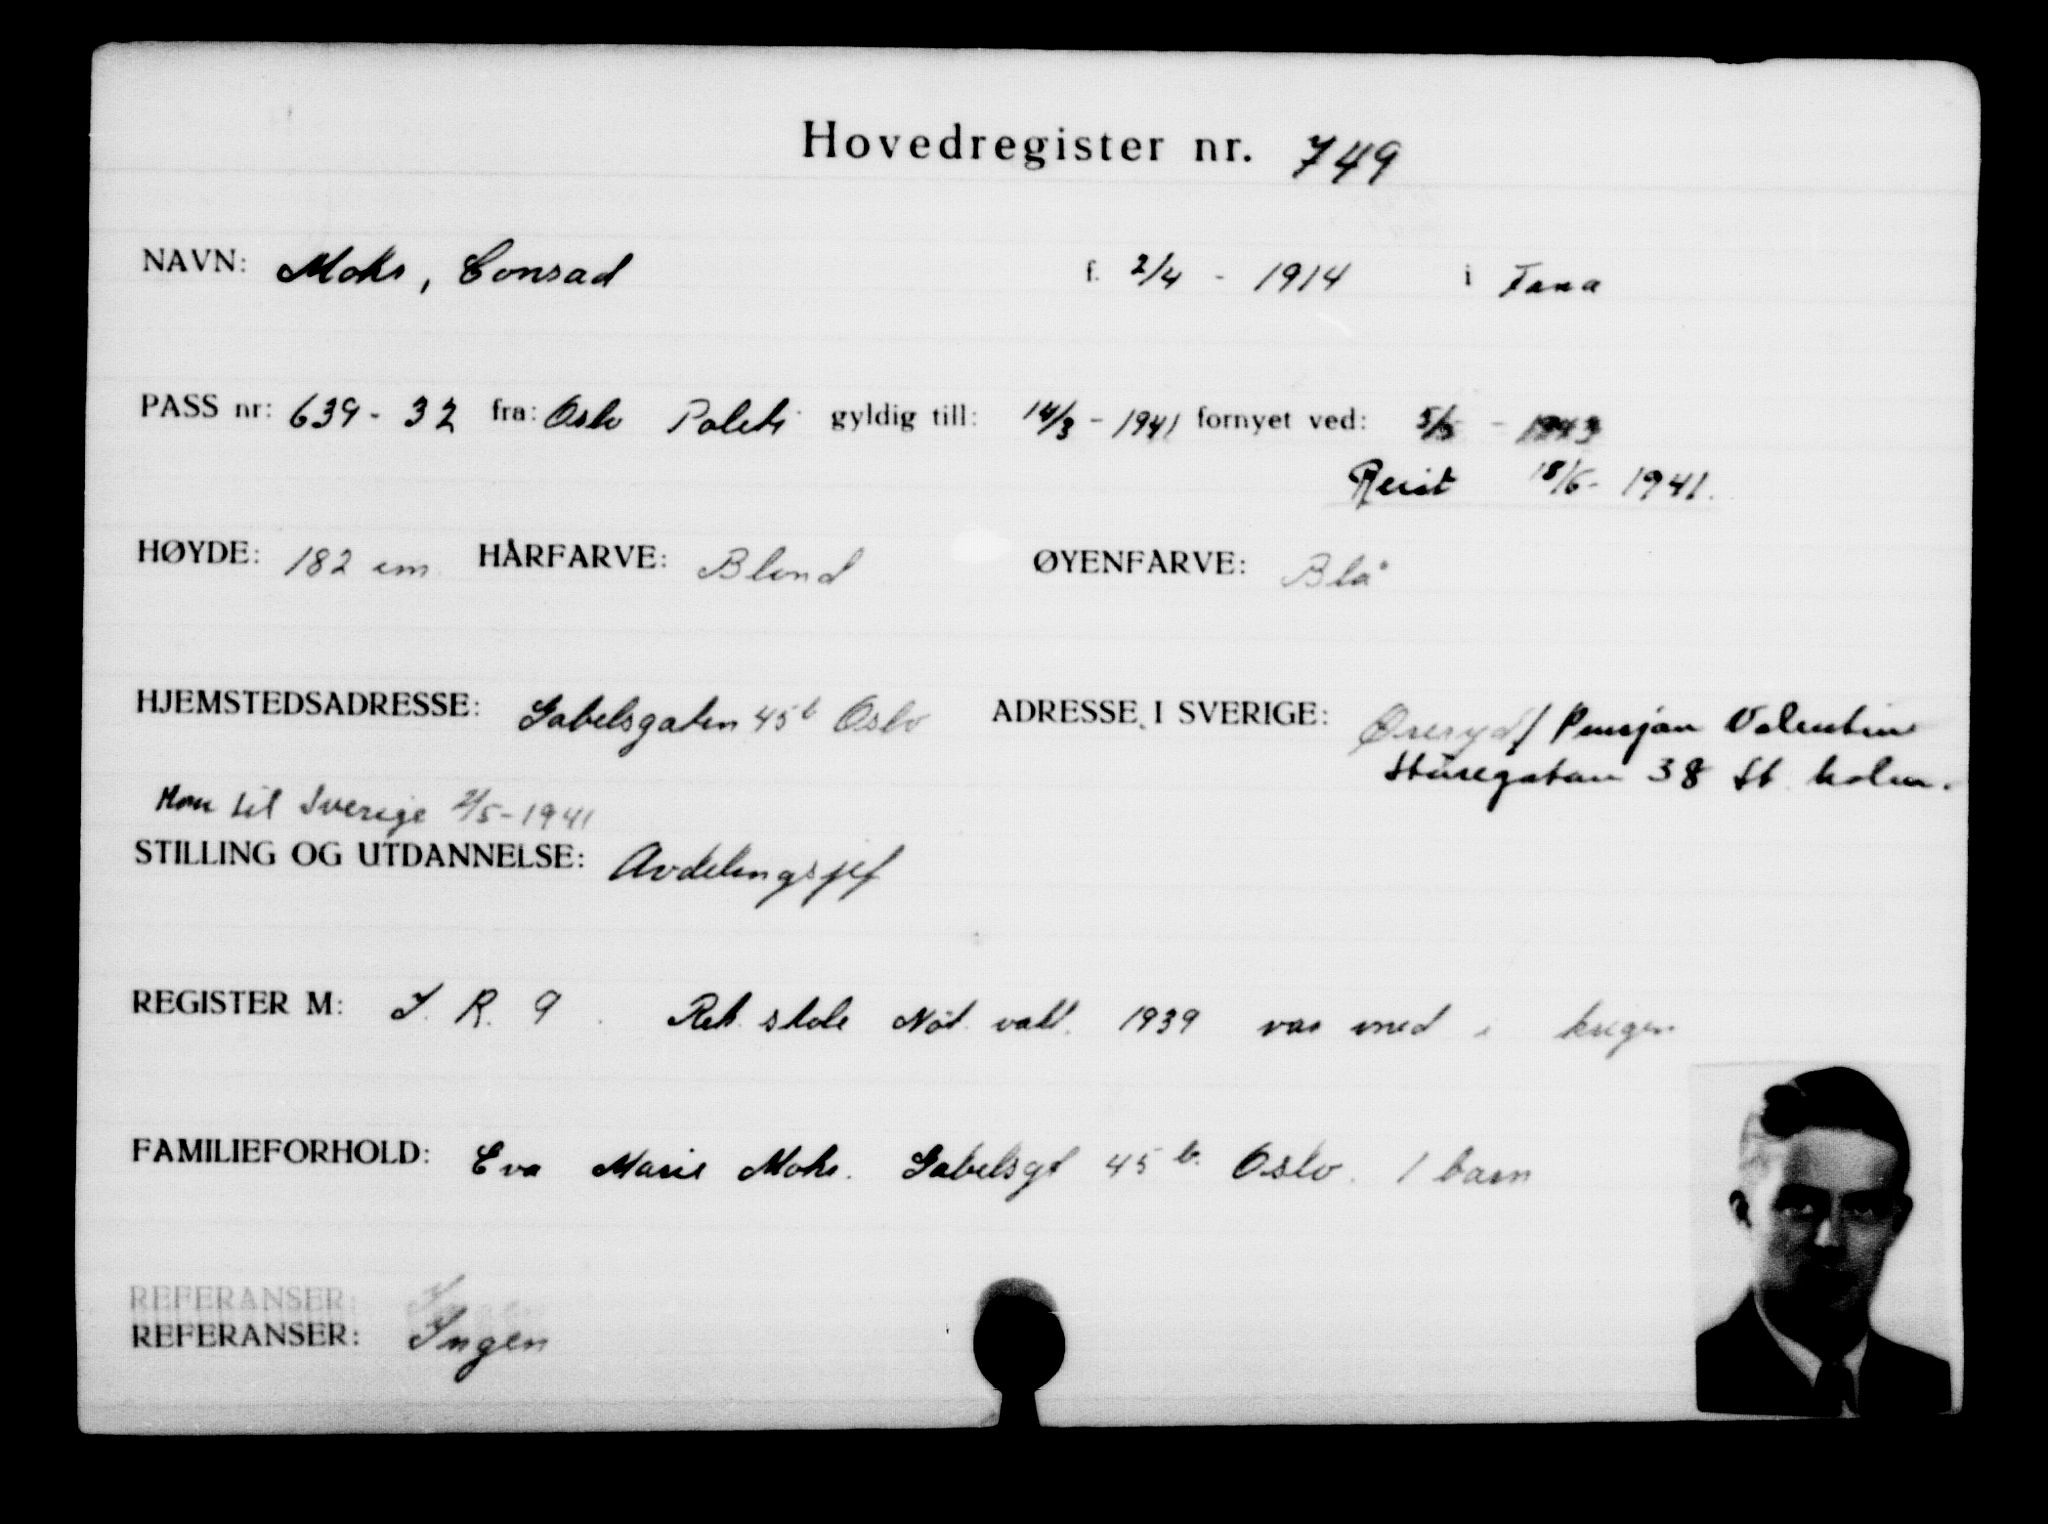 Hovedregister nr. 749
NAVN: Mohr, Conrad f. 2/4 - 1914 i Fana
PASS nr: 639 - 32 fra: Oslo Politi gyldig till: 14/3 - 1941 fornyet ved: 5/5 - 1943
Reist 18/6 - 1941.
HØYDE: 182 cm HÅRFARVE: Blond ØYENFARVE: Blå
HJEMSTEDSADRESSE: Gabelsgaten 45 b Oslo ADRESSE I SVERIGE: Øreryd / Pensjon Valentin
Sturegatan 38 St. holm.
Kom til Sverige 2/5 - 1941
STILLING OG UTDANNELSE: Avdelingsjef
REGISTER M: I. R. 9. Rek. skole Nøt. vakt. 1939 var med i krigen
FAMILIEFORHOLD: Eva Marie Mohr. Gabelsgt 45 b. Oslo. 1 barn
REFERANSER:
REFERANSER: Ingen